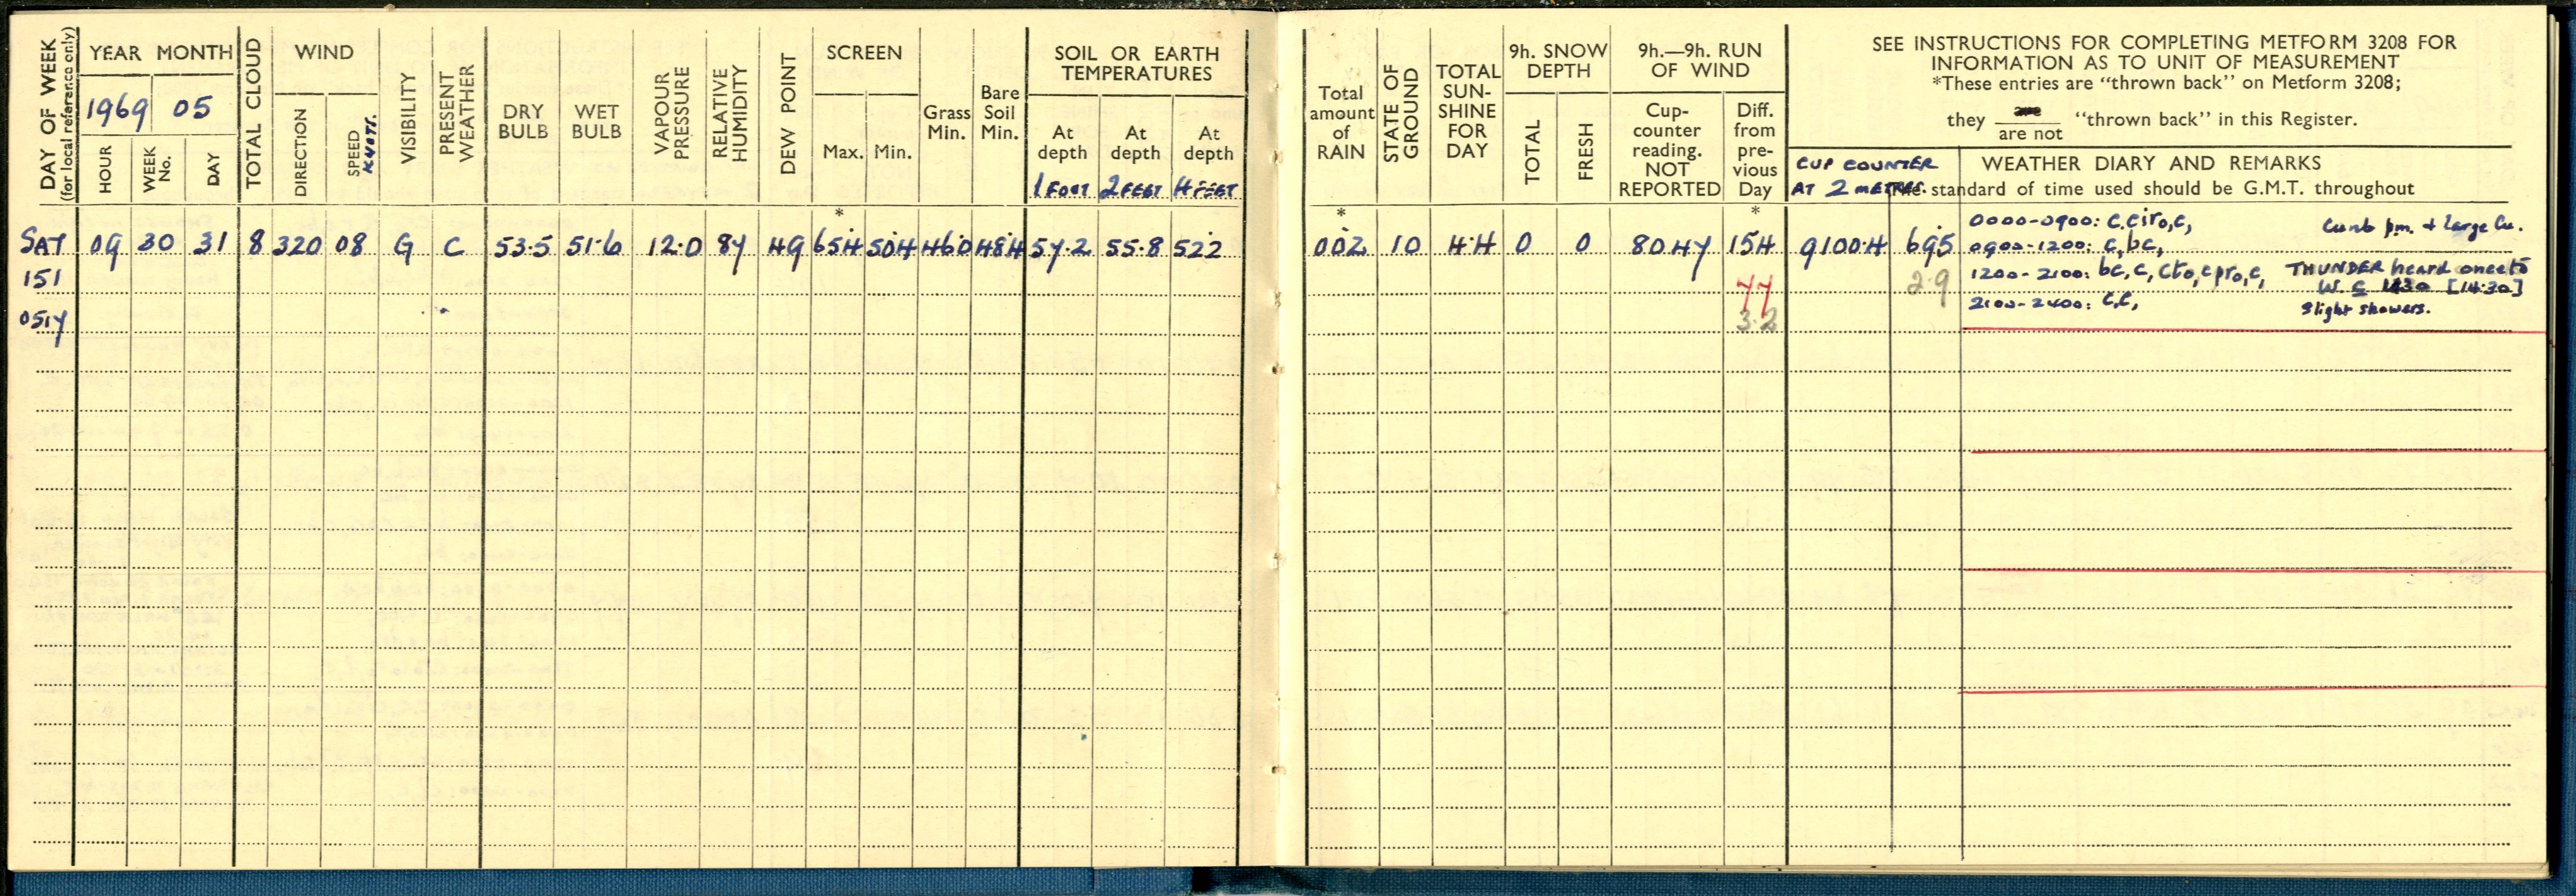 DAY OF WEEK
(for local reference only)
YEAR MONTH
1969 05
HOUR
WEEK No.
DAY
TOTAL CLOUD
WIND
DIRECTION
SPEED KNOTS.
VISIBILITY
PRESENT WEATHER
DRY BULB
WET BULB
VAPOUR PRESSURE
RELATIVE HUMIDITY
DEW POINT
SCREEN
Max. Min.
Grass Min.
Bare Soil Min.
SOIL OR EARTH
TEMPERATURES
At depth 1 FOOT
At depth 2 FEET
At depth 4 FEET
SAT 09 30 31 8 320 08 G C 53.5 51.6 12.0 87 49 65.4 50.4 46.0 48.4 57.2 55.8 52.2
151
05.17
Total amount of RAIN
STATE OF GROUND
TOTAL SUN-SHINE FOR DAY
9h. SNOW DEPTH
TOTAL
FRESH
9h.—9h. RUN OF WIND
Cup-counter reading. NOT REPORTED
Diff. from pre-vious Day
SEE INSTRUCTIONS FOR COMPLETING METFORM 3208 FOR
INFORMATION AS TO UNIT OF MEASUREMENT
*These entries are "thrown back" on Metform 3208;
they are / are not "thrown back" in this Register.
CUP COUNTER
AT 2 METRES.
WEATHER DIARY AND REMARKS
standard of time used should be G.M.T. throughout
* * *
0.02 10 4.4 0 0 8047 154 9100.4 69.5
77
3.2
2.9
0000-0900: c,ciro,c,
0900-1200: c,bc,
1200-2100: bc,c,cto,cpro,c,
2100-2400: c,c,
Cumb pm. + large Cu.
THUNDER heard once to
W. c 1430 [14.30]
Slight showers.